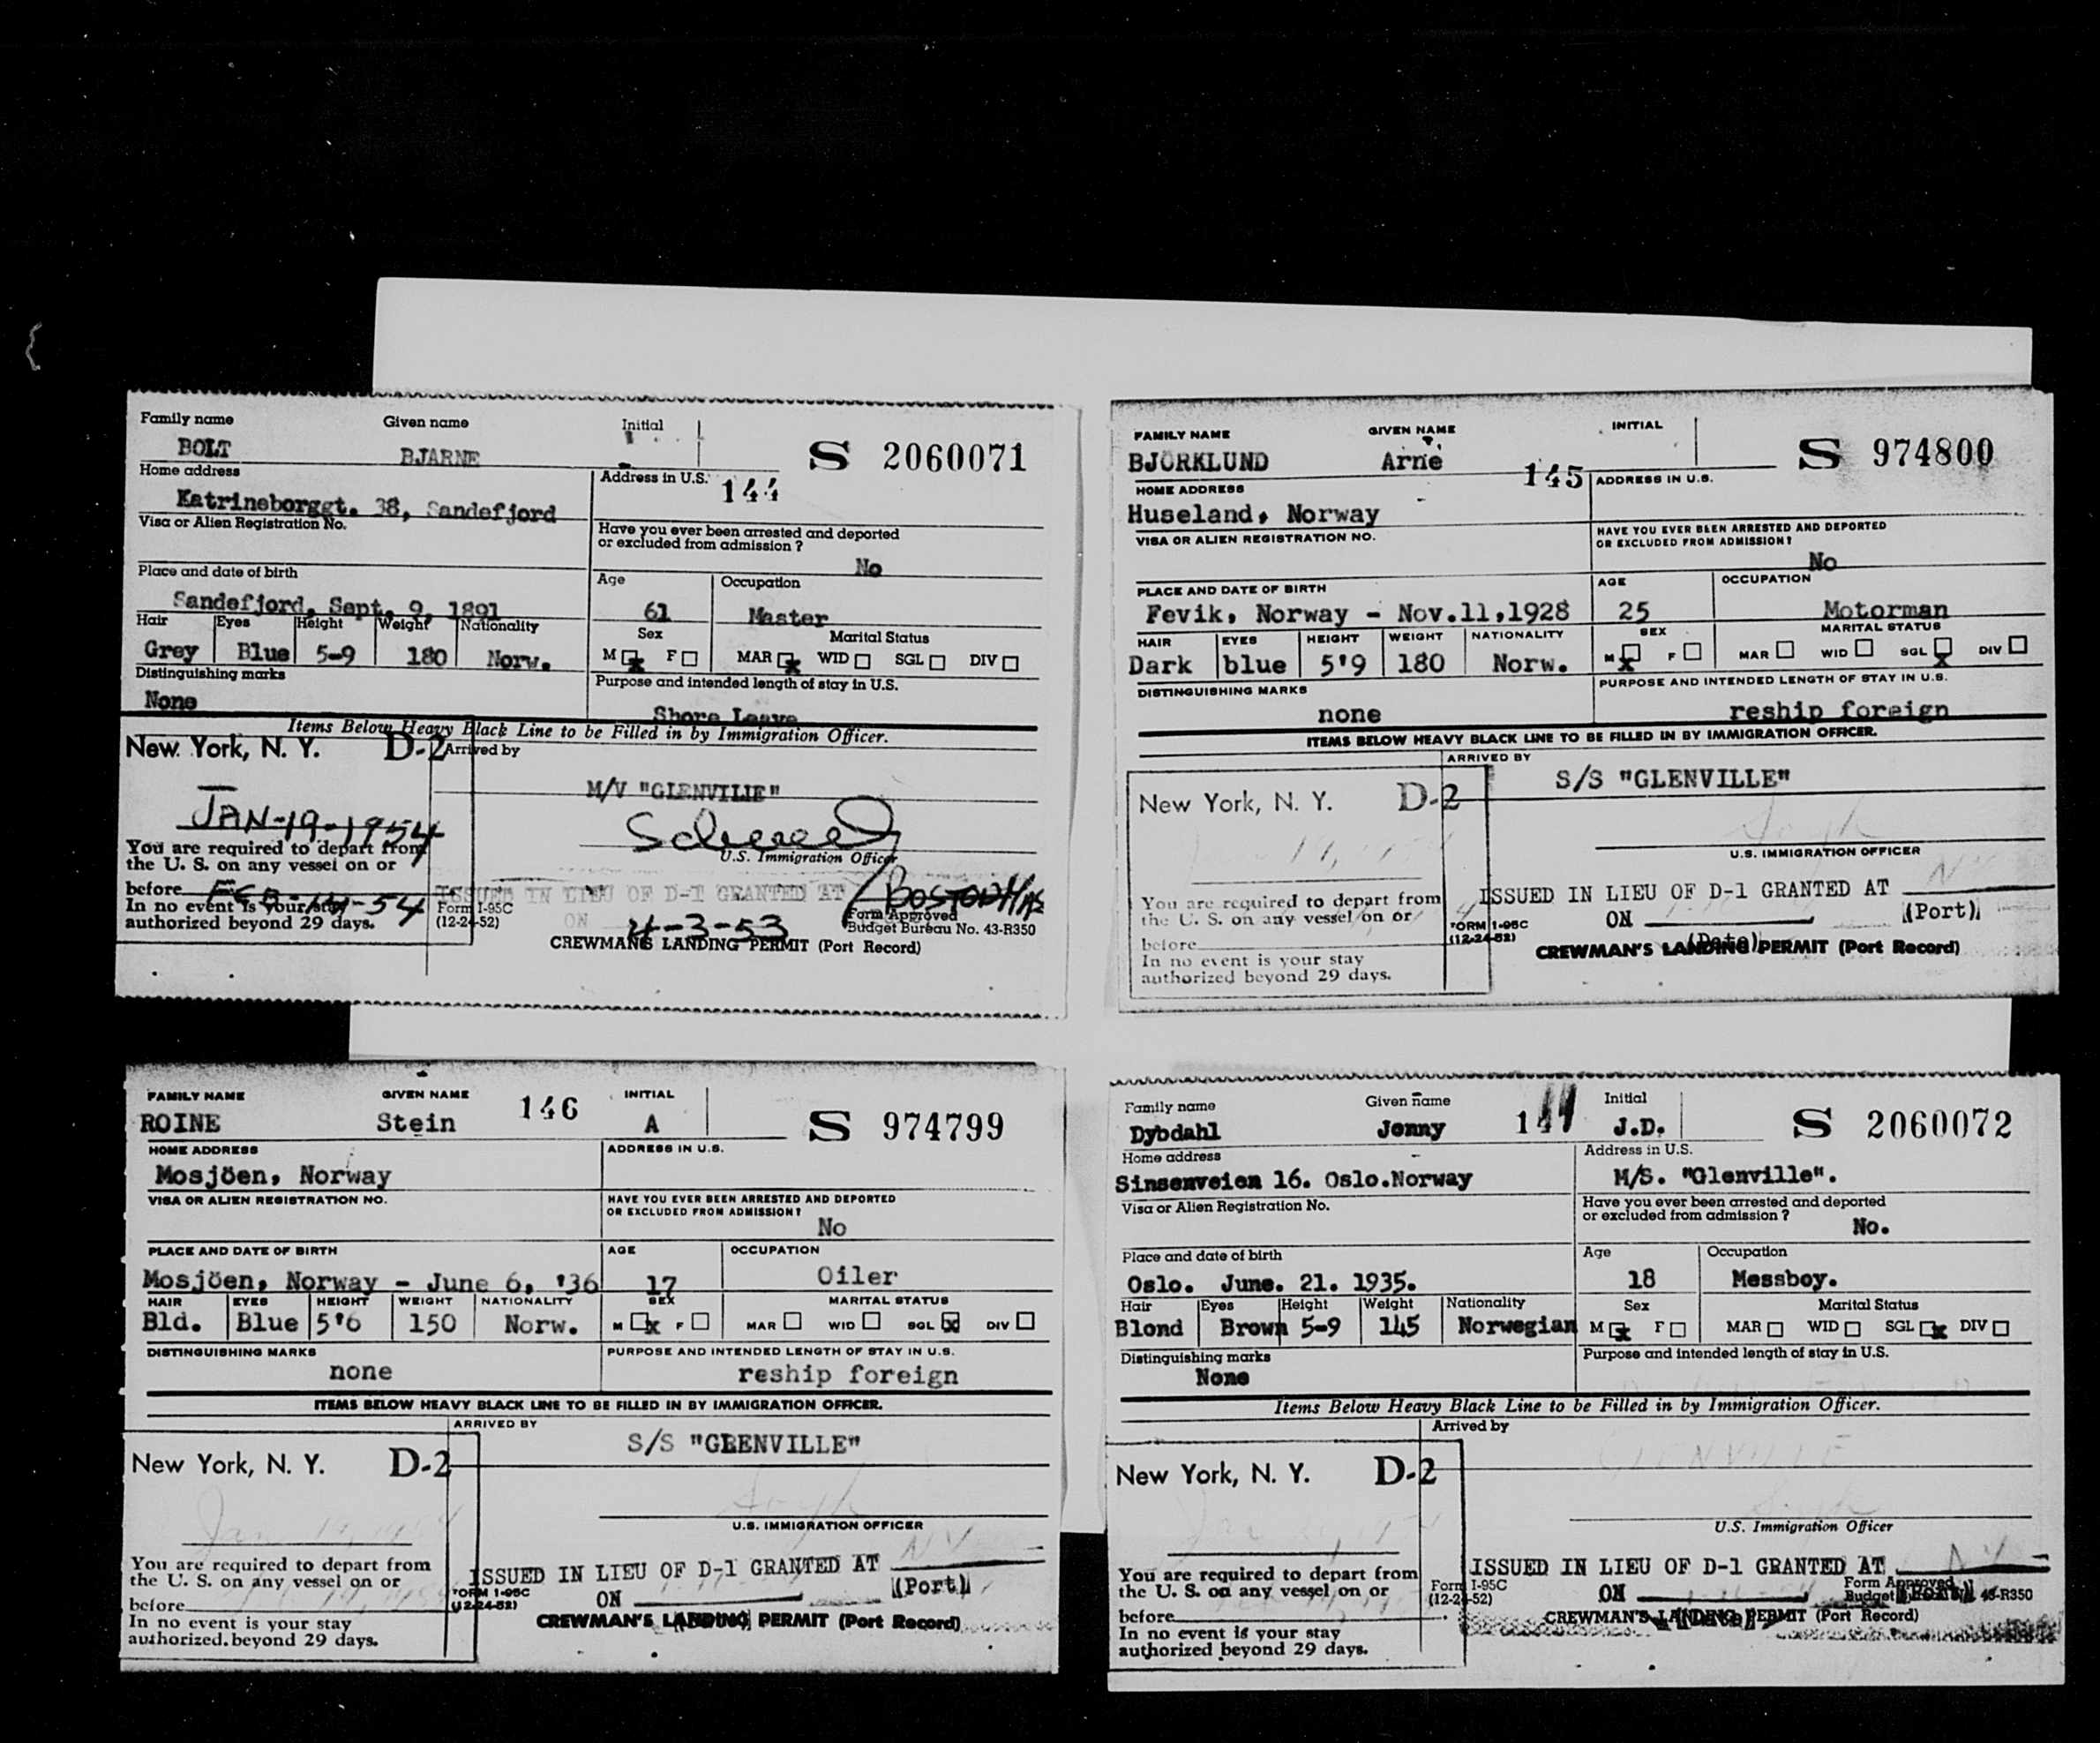 Family name Given name Initial
BOLT BJARNE S 2060071
Home address Address in U.S. 144
Katrineborggt. 38, Sandefjord
Visa or Alien Registration No. Have you ever been arrested and deported
or excluded from admission ?
No
Place and date of birth Age Occupation
Sandefjord, Sept. 9, 1891 61 Master
Hair Eyes Height Weight Nationality Sex Marital Status
Grey Blue 5-9 180 Norw. M x F MAR x WID SGL DIV
Distinguishing marks Purpose and intended length of stay in U.S.
None Shore Leave
Items Below Heavy Black Line to be Filled in by Immigration Officer.
New York, N. Y. D-2 Arrived by
M/V "GLENVILLE"
JAN-19-1954
You are required to depart from U.S. Immigration Officer
the U. S. on any vessel on or
before FEB-14-54 ISSUED IN LIEU OF D-1 GRANTED AT BOSTON
In no event is your stay Form I-95C ON 4-3-53 Form Approved
authorized beyond 29 days. (12-24-52) Budget Bureau No. 43-R350
CREWMAN'S LANDING PERMIT (Port Record)
FAMILY NAME GIVEN NAME INITIAL
BJORKLUND Arne 145 S 974800
HOME ADDRESS ADDRESS IN U.S.
Huseland, Norway
VISA OR ALIEN REGISTRATION NO. HAVE YOU EVER BEEN ARRESTED AND DEPORTED
OR EXCLUDED FROM ADMISSION?
No
PLACE AND DATE OF BIRTH AGE OCCUPATION
Fevik, Norway - Nov.11,1928 25 Motorman
HAIR EYES HEIGHT WEIGHT NATIONALITY SEX MARITAL STATUS
Dark blue 5'9 180 Norw. M x F MAR WID SGL x DIV
DISTINGUISHING MARKS PURPOSE AND INTENDED LENGTH OF STAY IN U.S.
none reship foreign
ITEMS BELOW HEAVY BLACK LINE TO BE FILLED IN BY IMMIGRATION OFFICER.
ARRIVED BY
New York, N. Y. D-2 S/S "GLENVILLE"
U.S. IMMIGRATION OFFICER
You are required to depart from ISSUED IN LIEU OF D-1 GRANTED AT
the U. S. on any vessel on or FORM I-95C ON (Port)
before (12-24-52) (Date)
In no event is your stay CREWMAN'S LANDING PERMIT (Port Record)
authorized beyond 29 days.
FAMILY NAME GIVEN NAME INITIAL
ROINE Stein 146 A S 974799
HOME ADDRESS ADDRESS IN U.S.
Mosjöen, Norway
VISA OR ALIEN REGISTRATION NO. HAVE YOU EVER BEEN ARRESTED AND DEPORTED
OR EXCLUDED FROM ADMISSION?
No
PLACE AND DATE OF BIRTH AGE OCCUPATION
Mosjöen, Norway - June 6, '36 17 Oiler
HAIR EYES HEIGHT WEIGHT NATIONALITY SEX MARITAL STATUS
Bld. Blue 5'6 150 Norw. M x F MAR WID SGL x DIV
DISTINGUISHING MARKS PURPOSE AND INTENDED LENGTH OF STAY IN U.S.
none reship foreign
ITEMS BELOW HEAVY BLACK LINE TO BE FILLED IN BY IMMIGRATION OFFICER.
ARRIVED BY
New York, N. Y. D-2 S/S "GLENVILLE"
Jan 19, 1954
U.S. IMMIGRATION OFFICER
You are required to depart from ISSUED IN LIEU OF D-1 GRANTED AT NY
the U. S. on any vessel on or FORM I-95C ON (Port)
before (12-24-52)
In no event is your stay CREWMAN'S LANDING PERMIT (Port Record)
authorized beyond 29 days.
Family name Given name Initial
Dybdahl Jonny J.D. S 2060072
Home address Address in U.S.
Sinsenveien 16. Oslo.Norway M/S. "Glenville".
Visa or Alien Registration No. Have you ever been arrested and deported
or excluded from admission ?
No.
Place and date of birth Age Occupation
Oslo. June. 21. 1935. 18 Messboy.
Hair Eyes Height Weight Nationality Sex Marital Status
Blond Brown 5-9 145 Norwegian M x F MAR WID SGL x DIV
Distinguishing marks Purpose and intended length of stay in U.S.
None
Items Below Heavy Black Line to be Filled in by Immigration Officer.
Arrived by
GLENVILLE
New York, N. Y. D-2
U.S. Immigration Officer
You are required to depart from ISSUED IN LIEU OF D-1 GRANTED AT NY
the U. S. on any vessel on or Form I-95C ON Form Approved
before (12-24-52) Budget 43-R350
In no event is your stay CREWMAN'S LANDING PERMIT (Port Record)
authorized beyond 29 days.